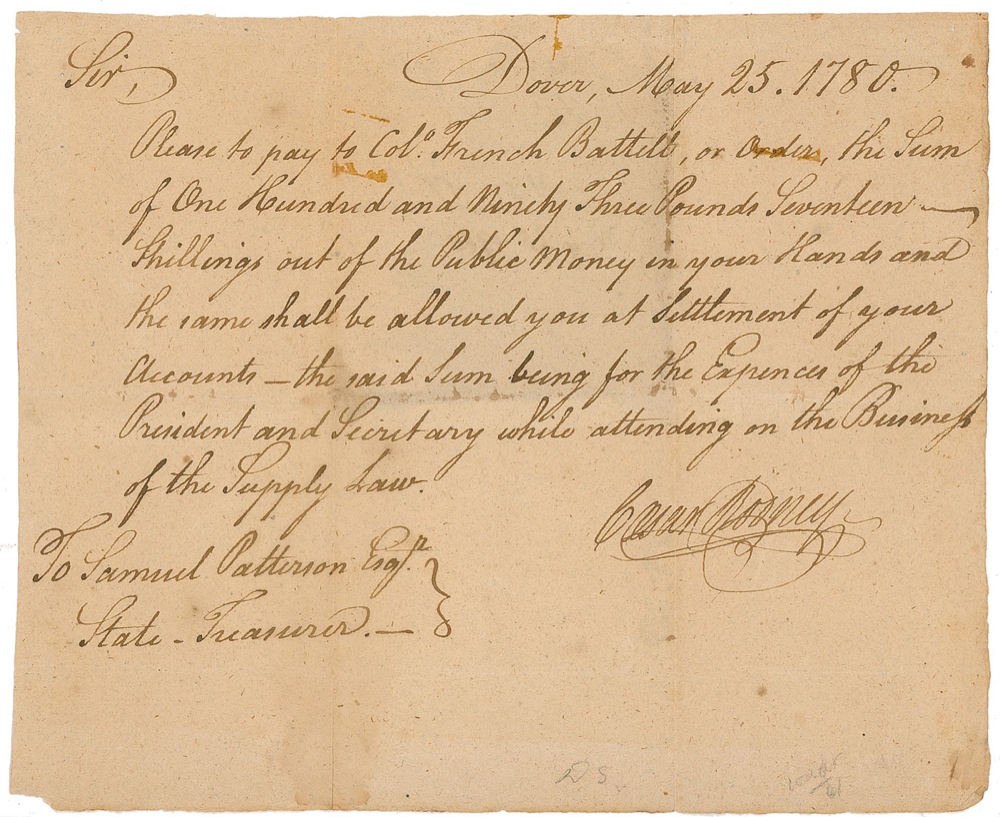 Sir,
Dover, May 25. 1780.
Please to pay to Colo. French Battell, or Order, the Sum
of One Hundred and Ninety Three Pounds Seventeen
Shillings out of the Public Money in your Hands and
the same shall be allowed you at Settlement of your
Accounts — the said Sum being for the Expences of the
President and Secretary while attending on the Business
of the Supply Law.
Caesar Rodney
To Samuel Patterson Esqr.
State-Treasurer. —
DS